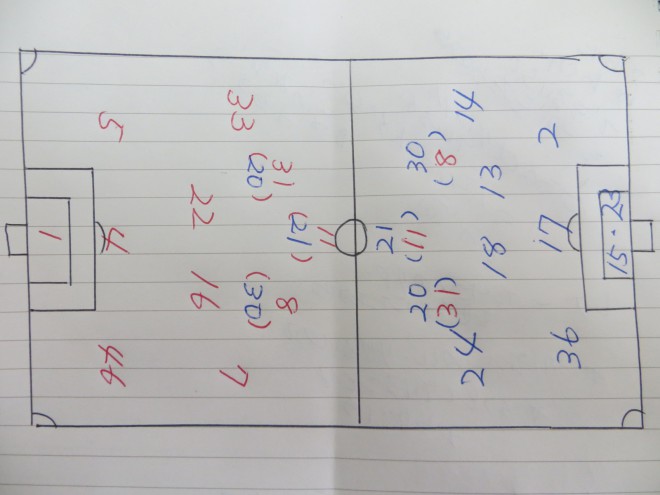 31 11 8
(20) (21) (30)
33 22 16 7
5 4 46
1
20 21 30
(31) (11) (8)
24 18 13 14
36 17 2
15・23